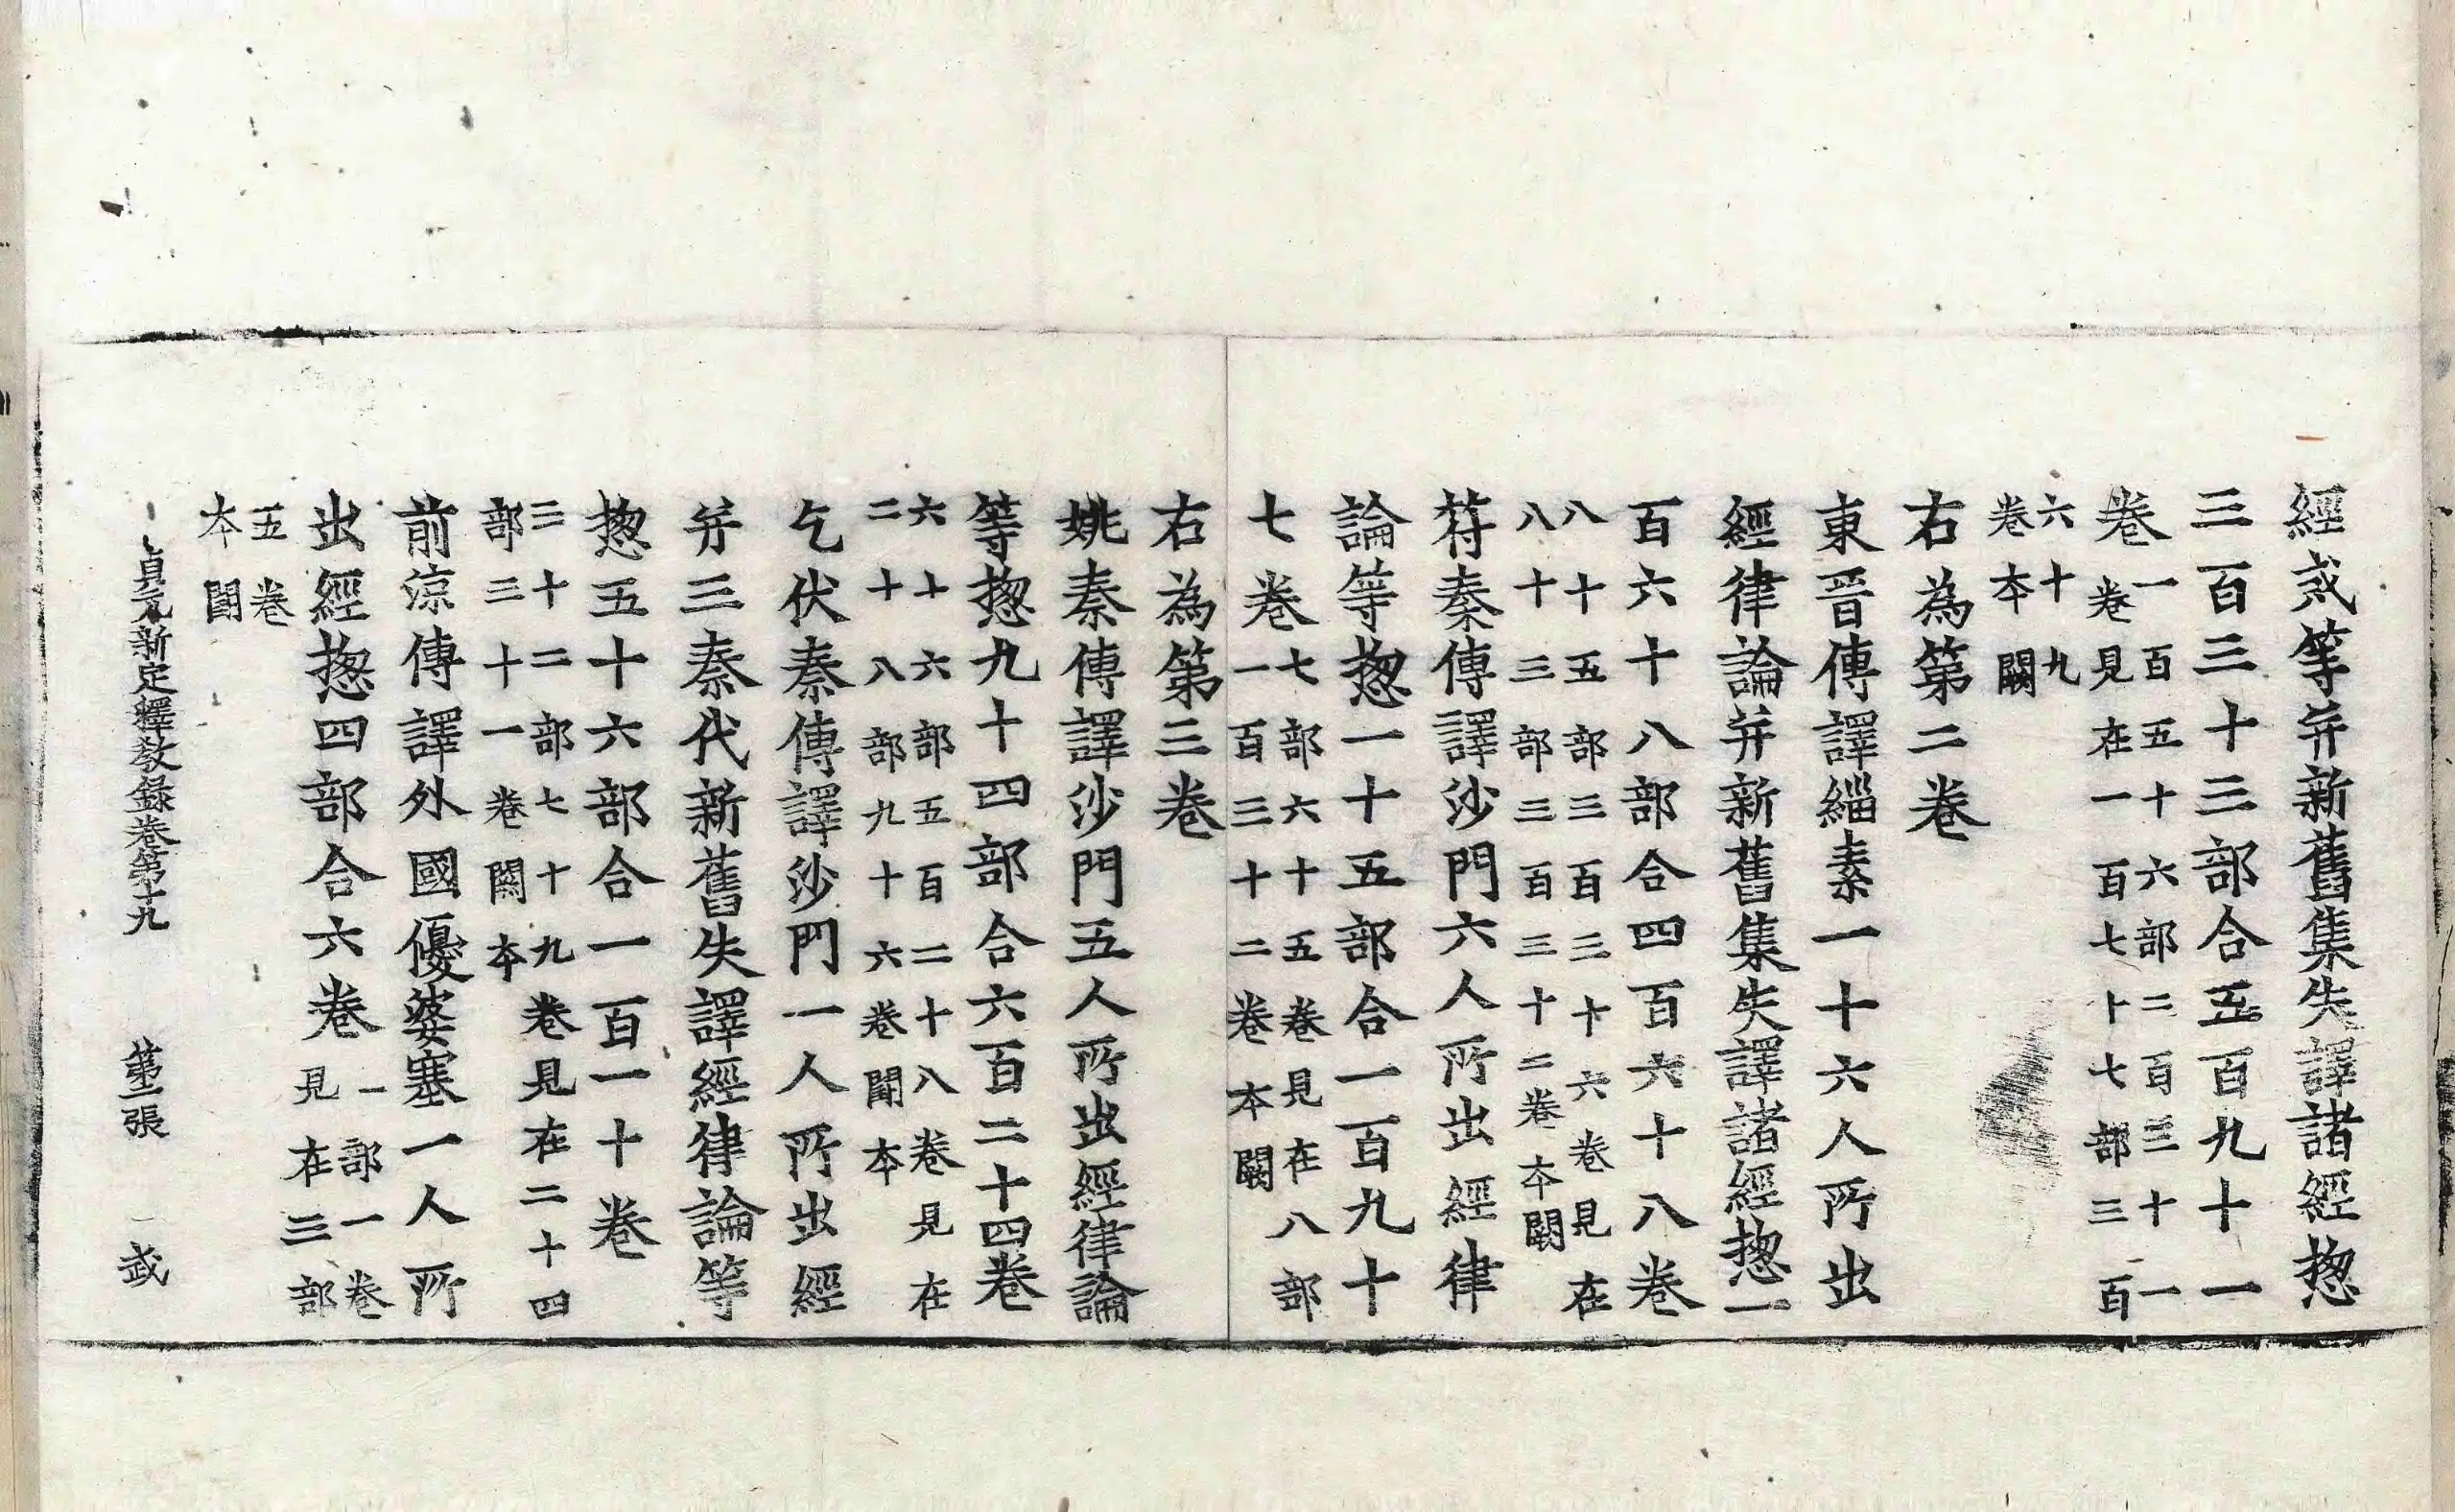 經戒等并新舊集失譯諸經揔
三百三十三部合五百九十一
卷一百五十六部二百三十一
卷見在一百七十七部三百
六十九
卷本闕
右為第二卷
東晉傳譯緇素一十六人所出
經律論并新舊集失譯諸經揔一
百六十八部合四百六十八卷
八十五部三百三十六卷見在
八十三部三百三十二卷本闕
苻秦傳譯沙門六人所出經律
論等揔一十五部合一百九十
七卷七部六十五卷見在八部
一百三十二卷本闕
右為第三卷
姚秦傳譯沙門五人所出經律論
等揔九十四部合六百二十四卷
六十六部五百二十八卷見在
二十八部九十六卷闕本
乞伏秦傳譯沙門一人所出經
并三秦代新舊失譯經律論等
揔五十六部合一百一十卷
三十二部七十九卷見在二十四
部三十一卷闕本
前涼傳譯外國優婆塞一人所
出經揔四部合六卷一部一卷
見在三部
五卷
本闕
貞元新定釋教錄卷第十九　第二張　武